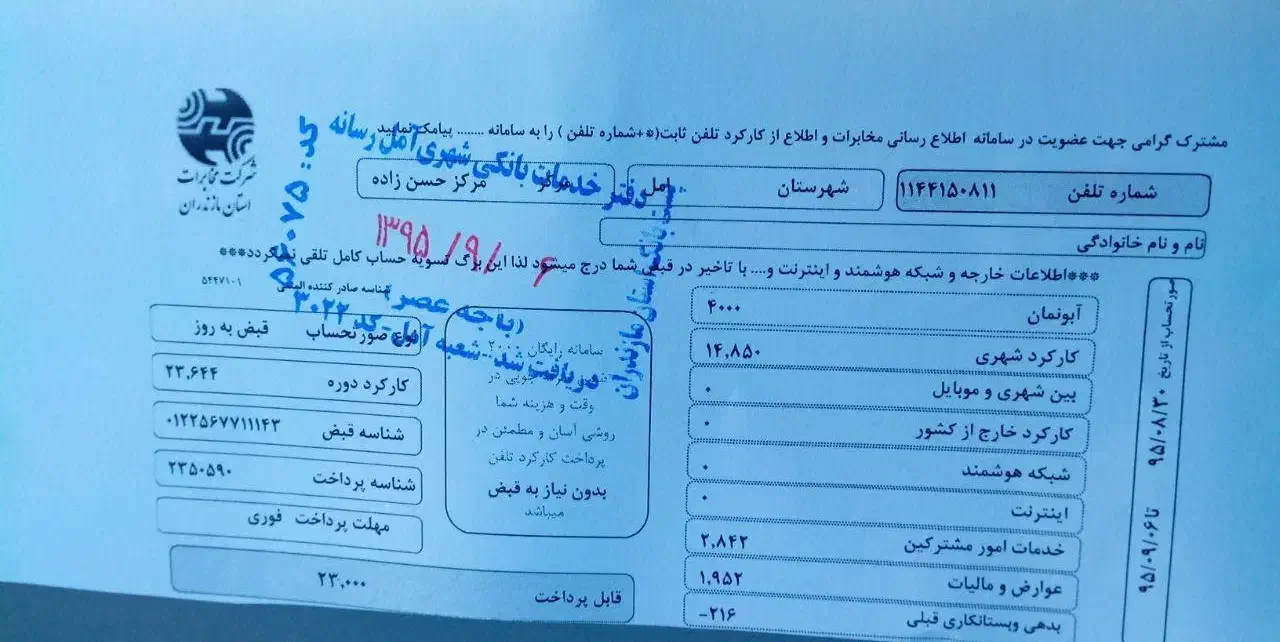 شرکت مخابرات
استان مازندران
مشترک گرامی جهت عضویت در سامانه اطلاع رسانی مخابرات و اطلاع از کارکرد تلفن ثابت(*+شماره تلفن ) را به سامانه ........ پیامک نمایید
شماره تلفن ۱۱۴۴۱۵۰۸۱۱
شهرستان آمل
مرکز مرکز حسن زاده
نام و نام خانوادگی
***اطلاعات خارجه و شبکه هوشمند و اینترنت و.... با تاخیر در قبض شما درج میشود لذا این برگ تسویه حساب کامل تلقی نمیگردد***
صورتحساب از تاریخ ۹۵/۰۸/۳۰ تا ۹۵/۰۹/۰۶
آبونمان ۴۰۰۰
کارکرد شهری ۱۴,۸۵۰
بین شهری و موبایل ۰
کارکرد خارج از کشور ۰
شبکه هوشمند ۰
اینترنت ۰
خدمات امور مشترکین ۲,۸۴۲
عوارض و مالیات ۱,۹۵۲
بدهی وبستانکاری قبلی ۲۱۶-
سامانه رایگان ۲۰۰۰
جویی در
وقت و هزینه شما
روشی آسان و مطمئن در
پرداخت کارکرد تلفن
بدون نیاز به قبض
میباشد
شناسه صادر کننده ۵۴۴۷۱۰۱
نوع صورتحساب قبض به روز
کارکرد دوره ۲۳,۶۴۴
شناسه قبض ۰۱۲۲۵۶۷۷۱۱۱۴۳
شناسه پرداخت ۲۳۵۰۵۹۰
مهلت پرداخت فوری
قابل پرداخت ۲۳,۰۰۰
دفتر خدمات بانکی شهری آمل رسانه
۱۳۹۵/۹/۰۶
(باجه عصر)
دریافت شد - شعبه آمل - کد ۳۰۲۲